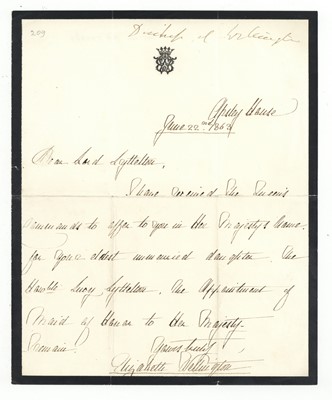 209
Duchess of Wellington
Apsley House
June 22nd 1863
Dear Lord Lyttelton,
I have received the Queen's
commands to offer to you in Her Majesty's name
for your eldest unmarried daughter The
Honble Lucy Lyttelton, the appointment of
Maid of Honor to Her Majesty.
Remain
Yours truly
Elizabeth Wellington